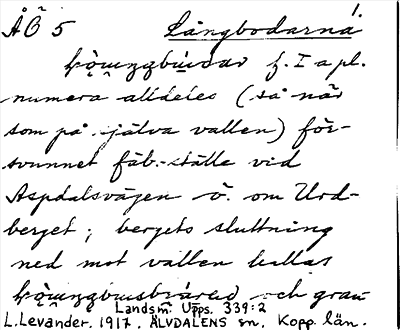 1.
ÅÖ 5 Långbodarna
f. I a pl.
numera alldeles (så när
som på själva vallen) för-
svunnet fäb.-ställe vid
Aspdalsvägen ö. om Urd-
berget; bergets sluttning
ned mot vallen kallas
och gran
Landsm. Upps. 339:2
L. Levander. 1917. ÄLVDALENS sn. Kopp. län.